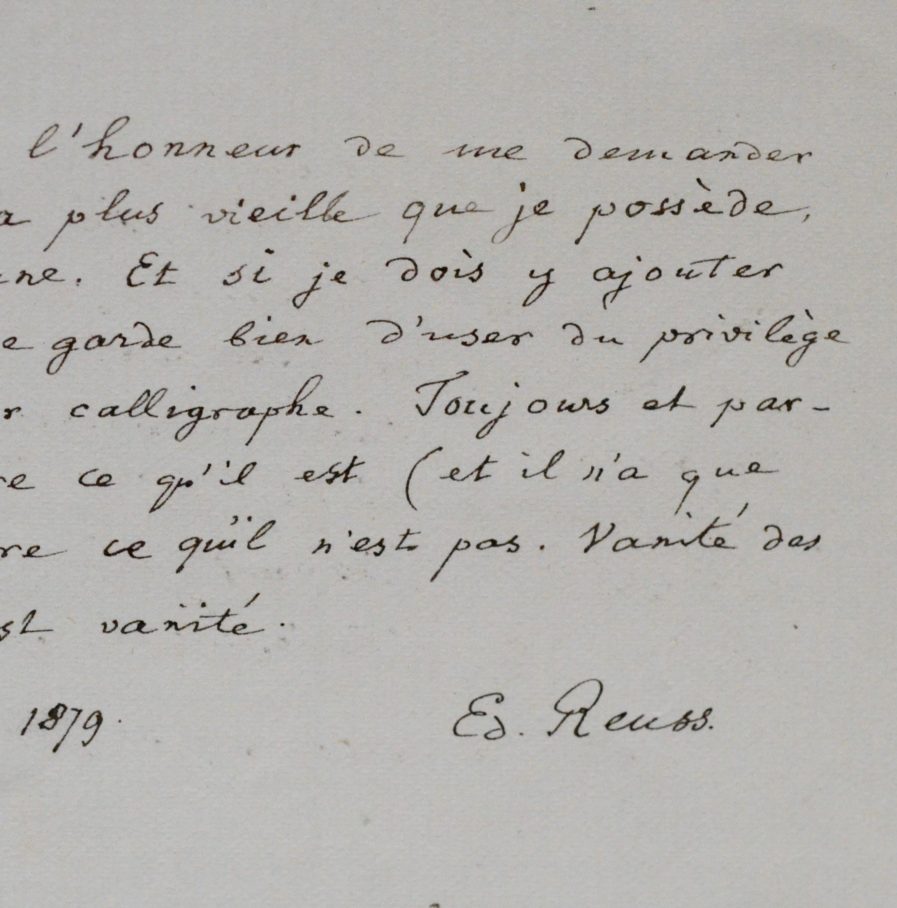 l'honneur de me demander
a plus vieille que je possède,
ne. Et si je dois y ajouter
e garde bien d'user du privilège
r calligraphe. Toujours et par-
re ce qu'il est (et il n'a que
re ce qu'il n'est pas. Vanité des
st vanité.
1879.
Ed. Reuss.